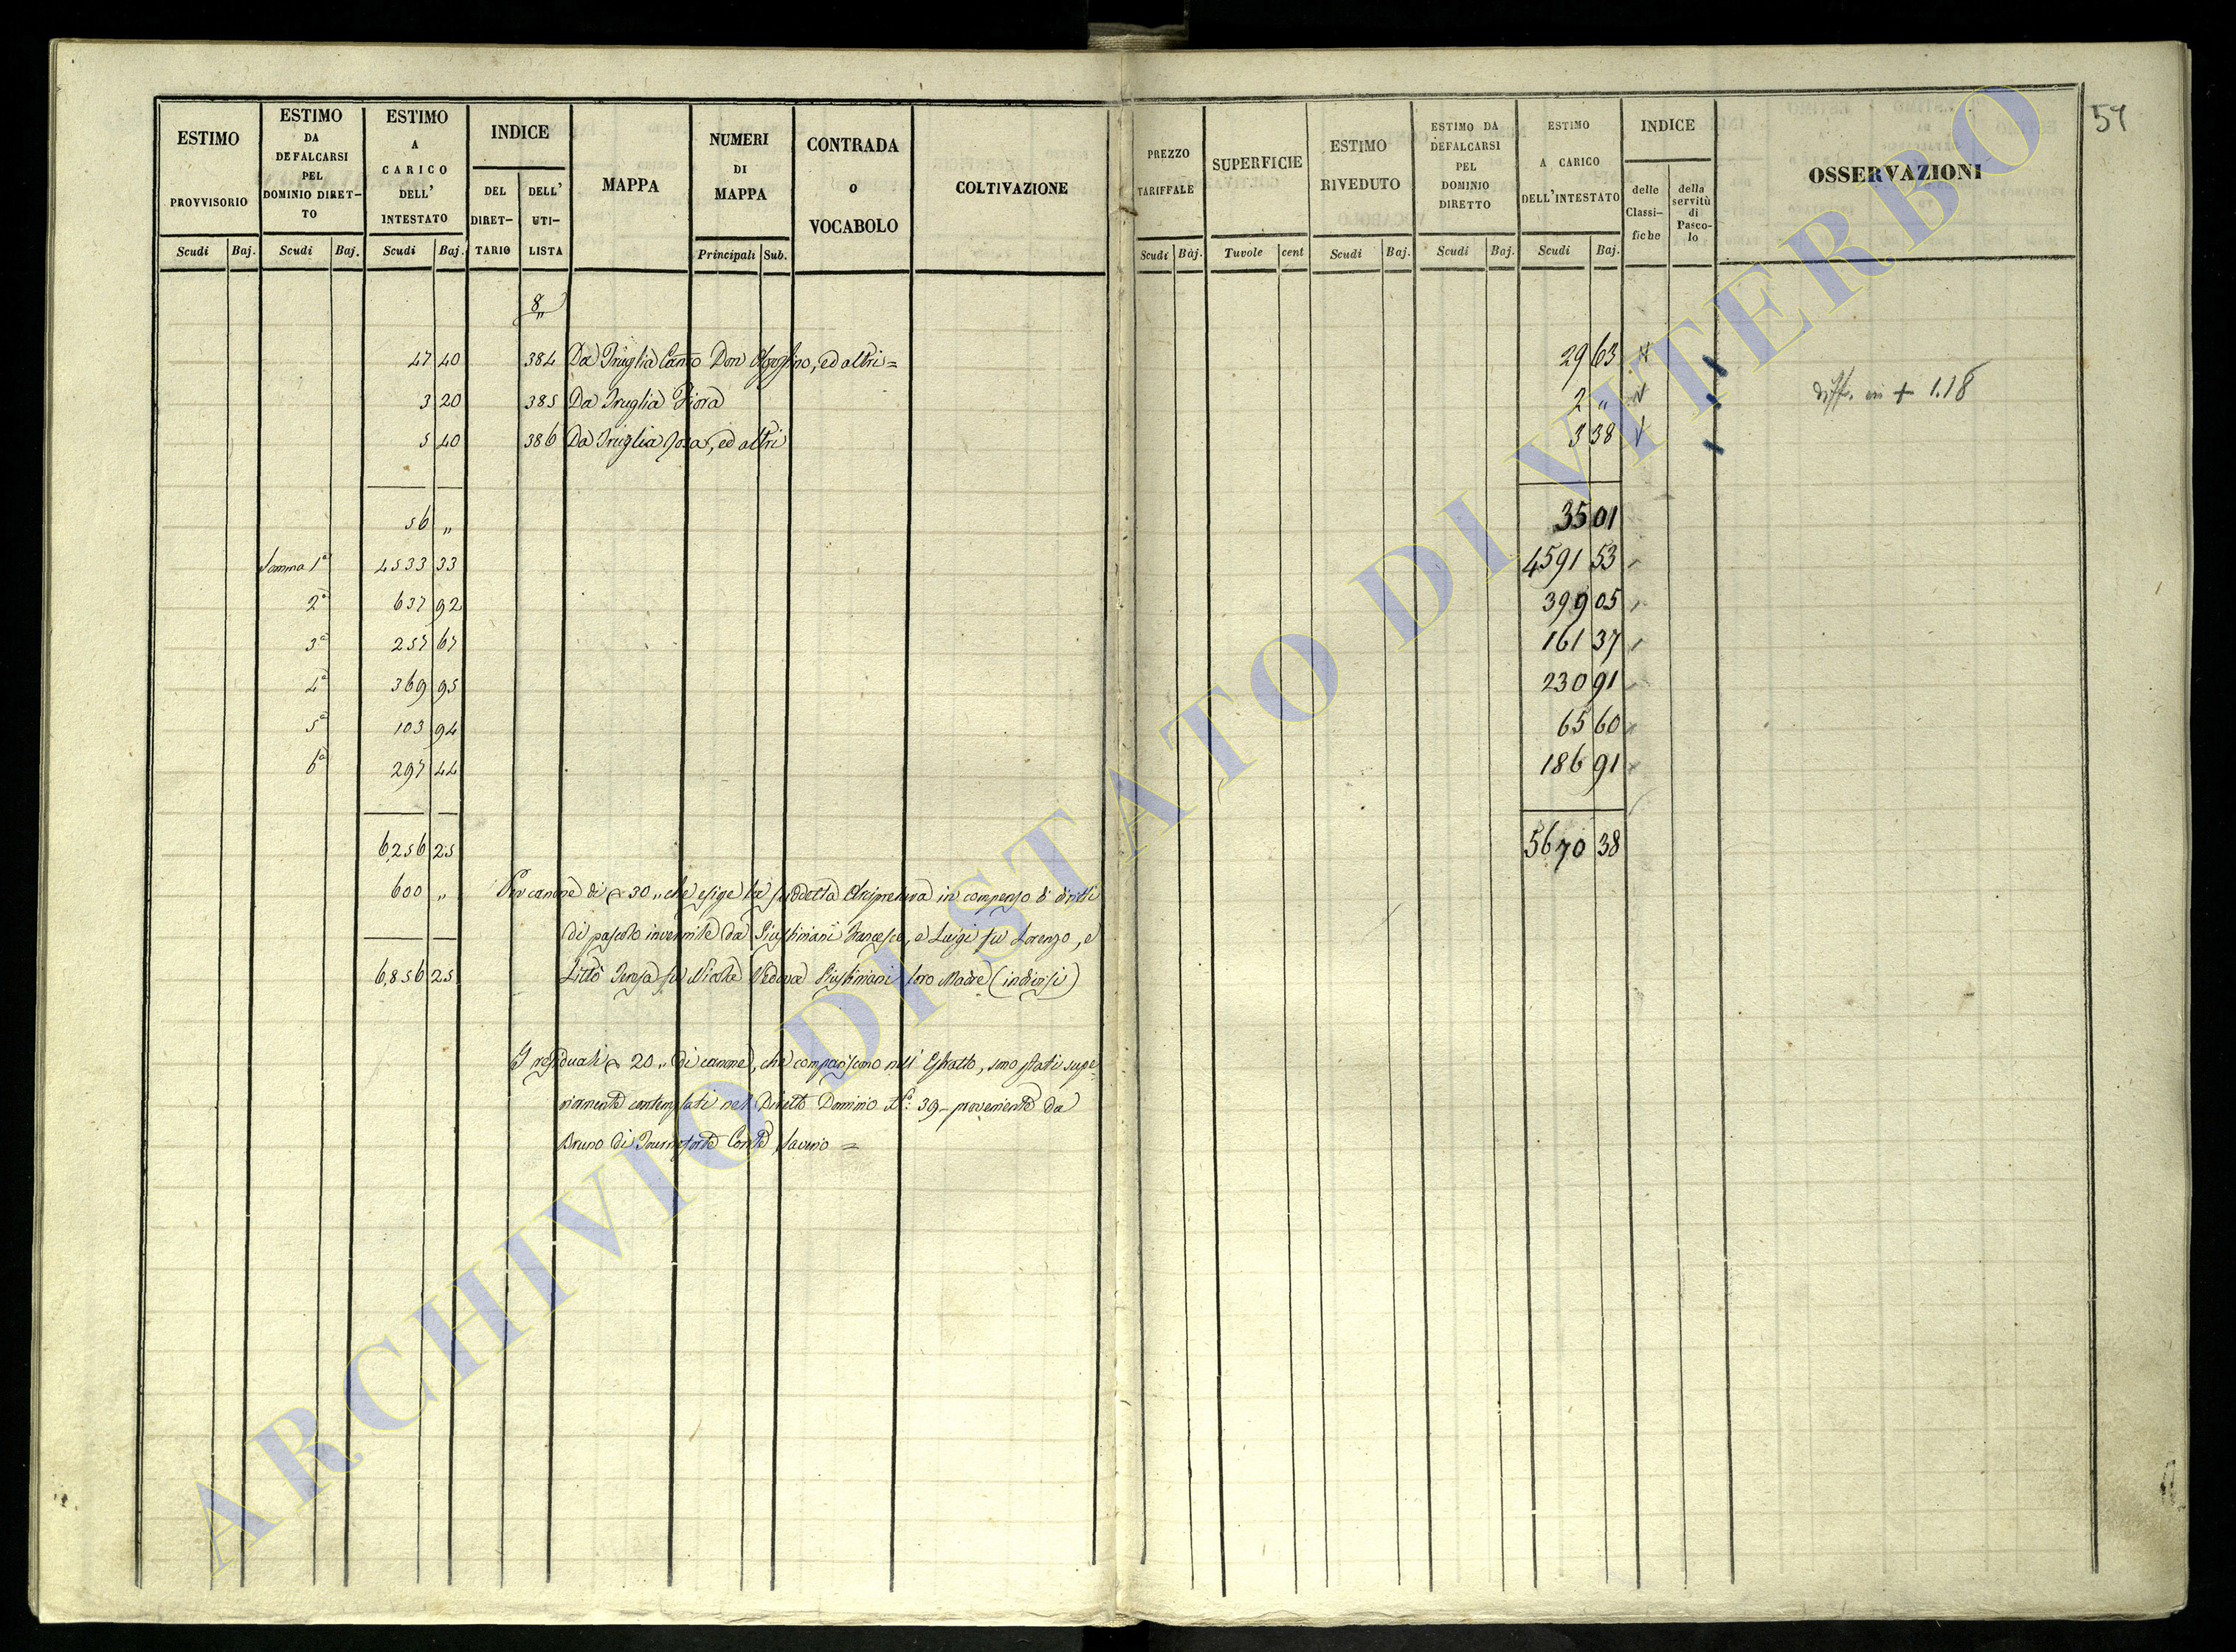 54
ESTIMO PROVVISORIO
ESTIMO DA DEFALCARSI PEL DOMINIO DIRETTO
ESTIMO A CARICO DELL' INTESTATO
INDICE
DEL DIRETTARIO
DELL' UTILISTA
MAPPA
NUMERI DI MAPPA
CONTRADA o VOCABOLO
COLTIVAZIONE
Scudi Baj. Scudi Baj. Scudi Baj. Principali Sub.
PREZZO TARIFFALE
SUPERFICIE
ESTIMO RIVEDUTO
ESTIMO DA DEFALCARSI PEL DOMINIO DIRETTO
ESTIMO A CARICO DELL'INTESTATO
INDICE
delle Classifiche
della servitù di Pascolo
OSSERVAZIONI
Scudi Baj. Tavole cent Scudi Baj. Scudi Baj. Scudi Baj.
8,,
47 40 384 Da Truglia Can.co Don ed altri = 29 63
3 20 385 Da Truglia Fiora 2 "
diff. in + 1.18
5 40 386 Da Truglia Rosa, ed altri 3 38
56 " 35 01
Somma 1ª 4533 33 4591 53
2ª 637 92 399 05
3ª 257 67 161 37
4ª 369 95 230 91
5ª 103 94 65 60
6ª 297 44 186 91
6256 25 5670 38
600 " Per canone di 30 " che esige la suddetta Arcipretura in compenso di diritti
di pascolo invernile da Giustiniani Francesco, e Luigi fu Lorenzo, e
6,856 25 Litto Teresa fu Nicola Vedova Giustiniani loro Madre (indivisi)
I residuali 20 " di canone, che compariscono nell' Estratto, sono stati supe=
riormente contemplati nel Diretto Dominio N.º 39 - proveniente da
Bruno di Tournafort Conte Saverio =
ARCHIVIO DI STATO DI VITERBO